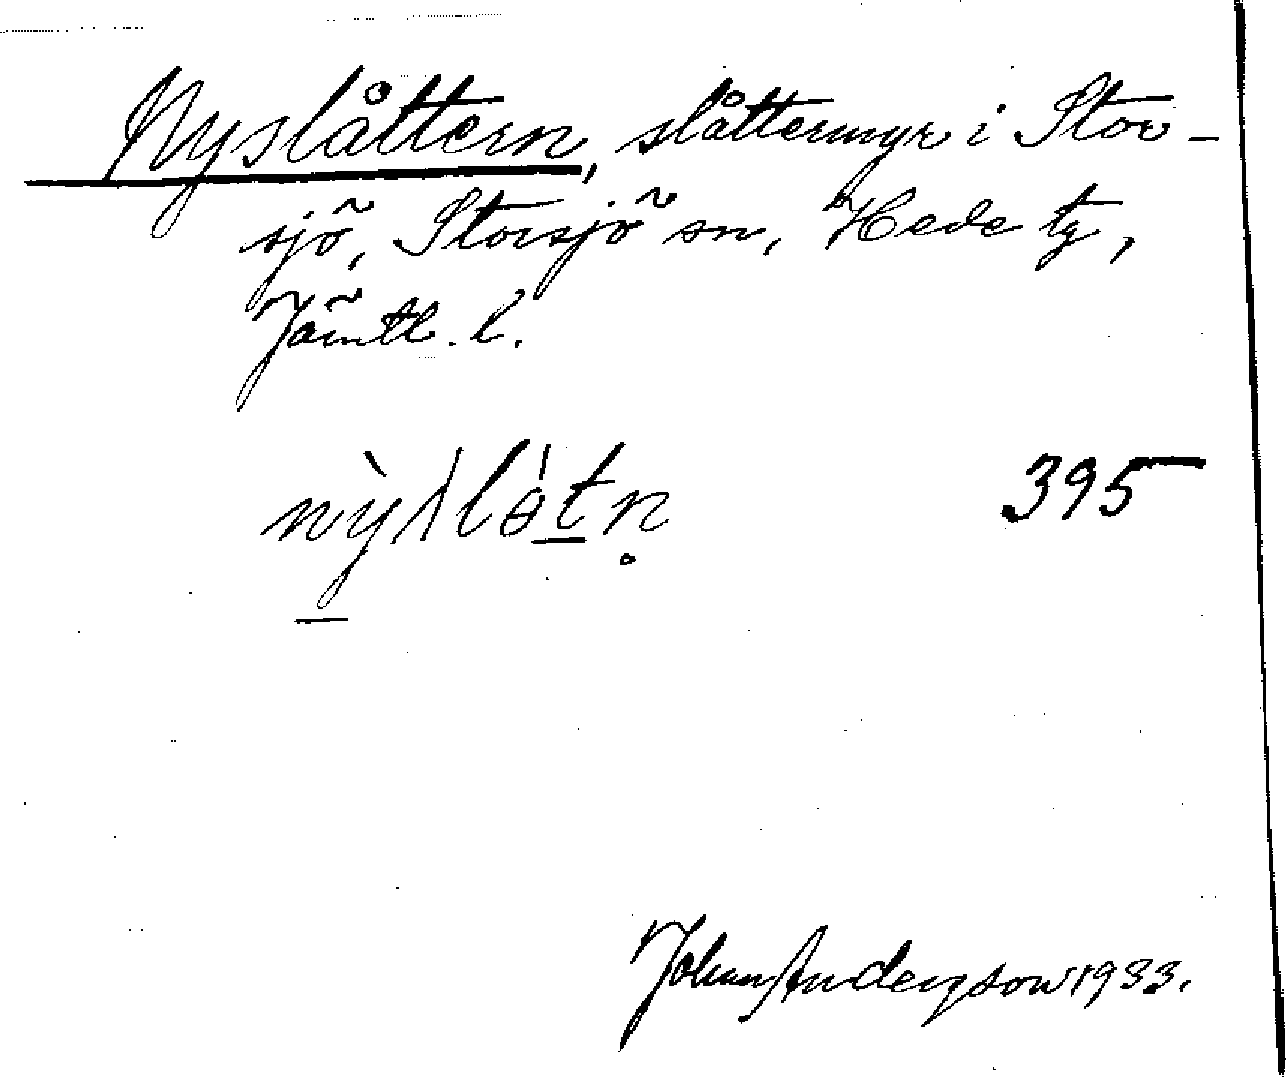 Nyslåttern, slåttermyr i Stor-
sjö, Storsjö sn, Hede tg,
Jämtl. l.
nỳslɵ̍tn̥ 395
Johan Anderson 1933.